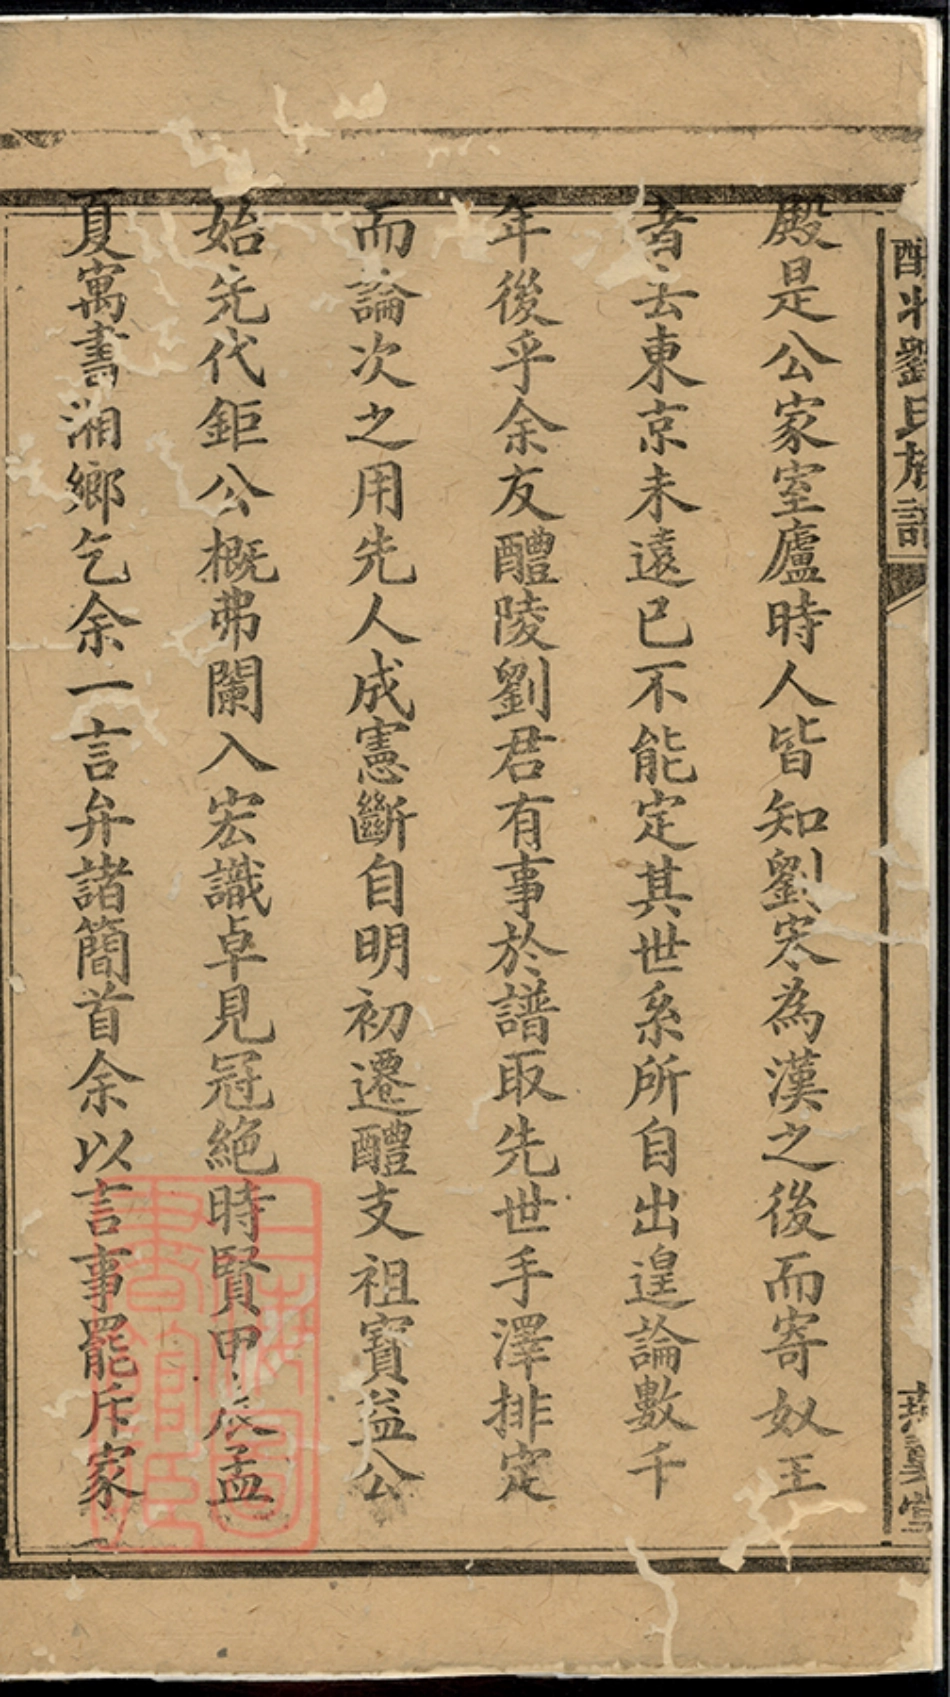 劉氏族譜
殿是公家室廬時人皆知劉寔為漢之後而寄奴王
者去東京未遠已不能定其世系所自出遑論數千
年後乎余友醴陵劉君有事於譜取先世手澤排定
而論次之用先人成憲斷自明初遷醴支祖寶益公
始先代鉅公概弗闌入宏識卓見冠絕時賢甲辰孟
夏寓書湘鄉乞余一言弁諸簡首余以言事罷斥家
上海圖書館臧